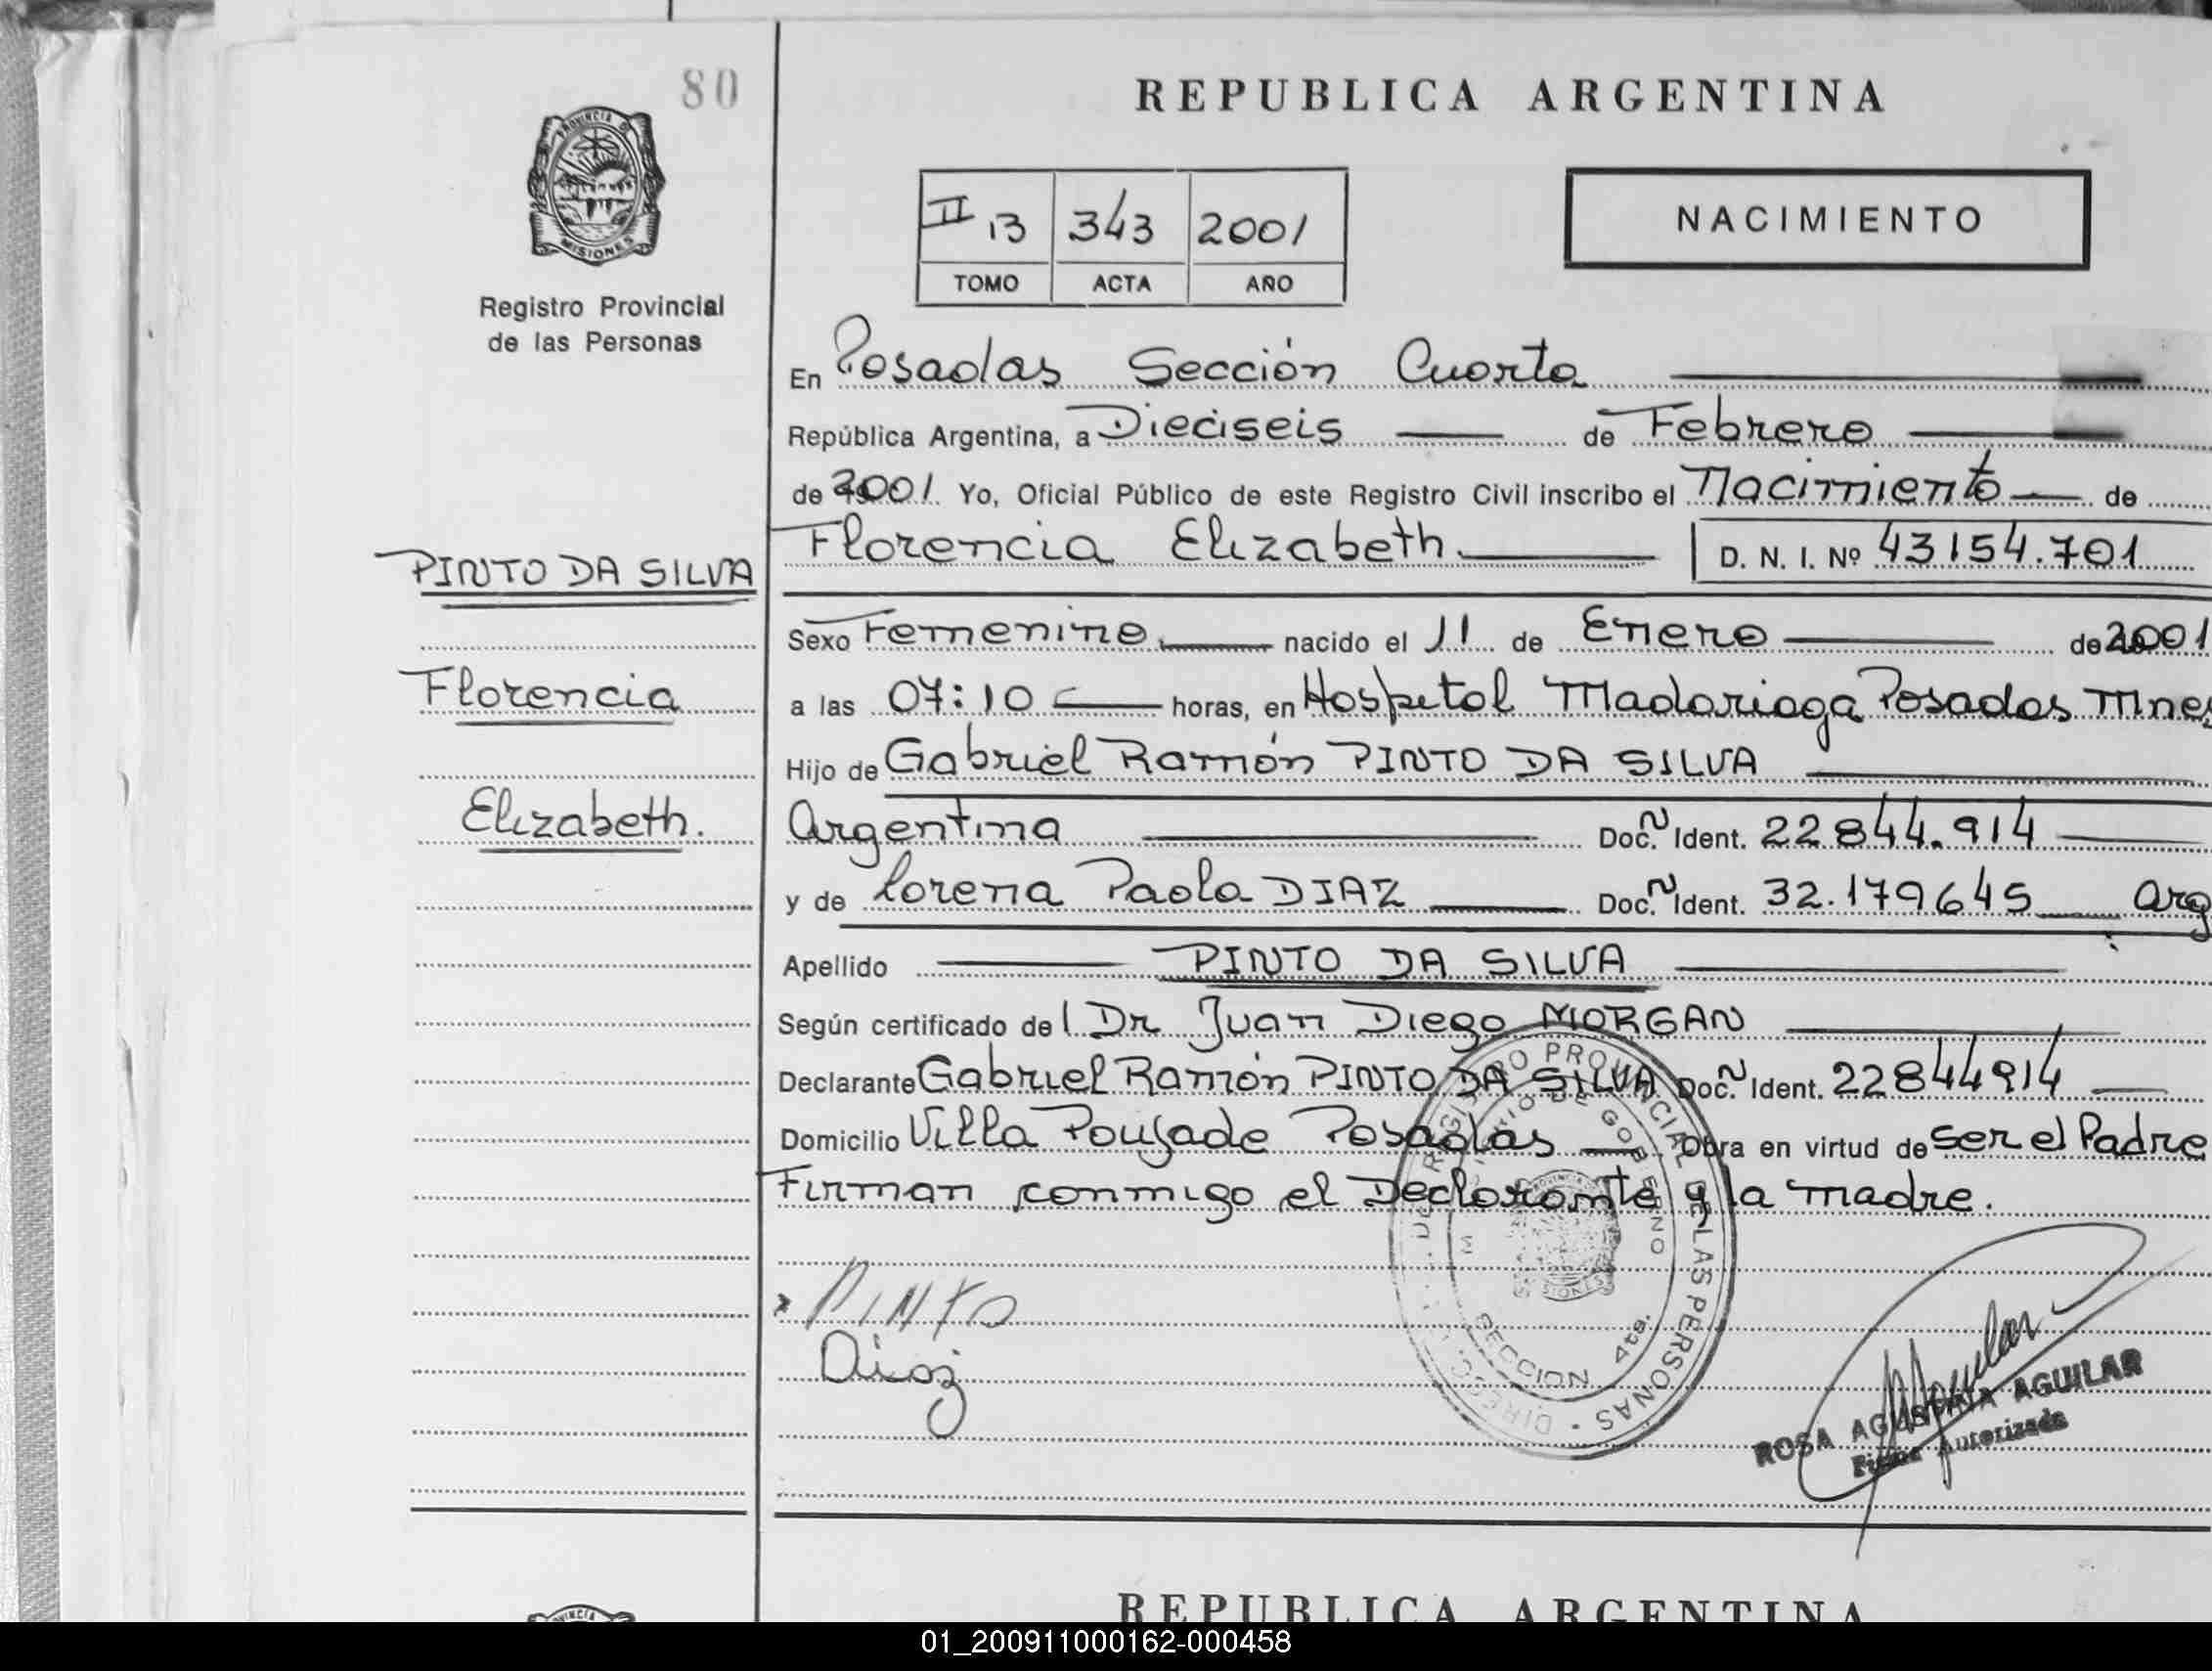 80
REPUBLICA ARGENTINA
PROVINCIA DE
MISIONES
Registro Provincial
de las Personas
II 13 343 2001
TOMO ACTA AÑO
NACIMIENTO
En Posadas Sección Cuarta
República Argentina, a Dieciseis de Febrero
de 2001 Yo, Oficial Público de este Registro Civil inscribo el Nacimiento de
Florencia Elizabeth. D. N. I. Nº 43154.701
PINTO DA SILVA
Sexo Femenino. nacido el 11 de Enero de 2001
Florencia
a las 07:10 horas, en Hospital Madariaga Posadas Mnes
Hijo de Gabriel Ramón PINTO DA SILVA
Elizabeth.
Argentina Doc. Ident. 22844.914
y de Lorena Paola DIAZ Doc. Ident. 32.179645 Arg
Apellido PINTO DA SILVA
Según certificado del Dr Juan Diego MORGAN
Declarante Gabriel Ramón PINTO DA SILVA Doc. Ident. 22844914
Domicilio Villa Poujade Posadas Obra en virtud de ser el Padre
Firman conmigo el Declarante y la madre.
REGISTRO PROVINCIAL DE LAS PERSONAS
DE GOBIERNO
SECCION 4ta.
PINTO
Diaz
Aguilar
ROSA AGUSTINA AGUILAR
Firma Autorizada
REPUBLICA ARGENTINA
01_200911000162-000458